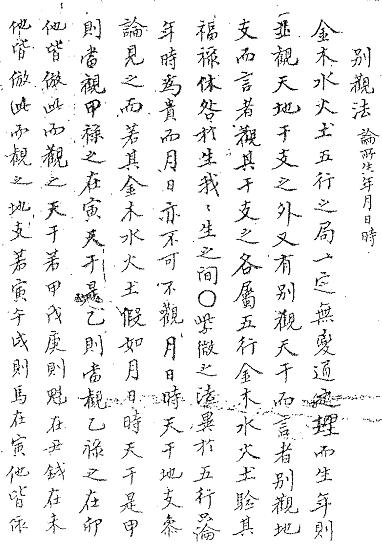 別觀法 論所生年月日時
金木水火土五行之局一定無變通理而生年則
並觀天地干支之外又有別觀天干而言者別觀地
支而言者觀其干支之各屬五行金木水火土驗其
福祿休咎於生我〻生之間〇紫微之法異於五行論
年時為貴而月日亦不可不觀月日時天干地支叅
論見之而若其金木水火土假如月日時天干是甲
則當觀甲祿之在寅天干是乙則當觀乙祿之在卯
他皆倣此而觀之天干若甲戊庚則魁在丑鉞在未
他皆倣此而觀之地支若寅午戌則馬在寅他皆依